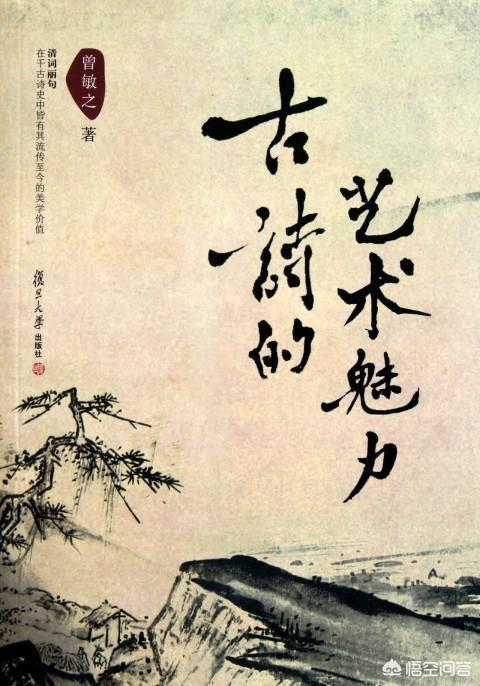 古诗的
艺术魅力
曾敏之
著
清词丽句
在千古诗史中皆有其流传至今的美学价值
復旦大學
出版社
悟空问答